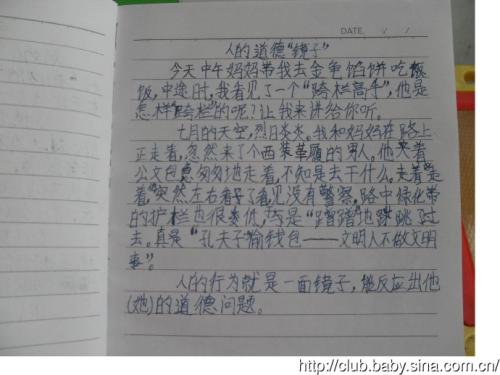 DATE / /
人的道德"镜子"
今天中午妈妈带我去金龟馅饼吃饭
饭,中途时,我看见了一个"跨栏高手",他是
怎样"跨栏"的呢?让我来讲给你听。
七月的天空,烈日炎炎。我和妈妈在路上
正走着,忽然来了个西装革履的男人。他夹着
公文包急匆匆地走着,不知是去干什么。走着走
着,突然左右看了看见没有警察,路中绿化带
的护栏也很矮,于是"蹭蹭"地跳过
去。真是"孔夫子偷钱包——文明人不做文明
事"。
人的行为就是一面镜子,能反应出他
(她)的道德问题。
http://club.baby.sina.com.cn/